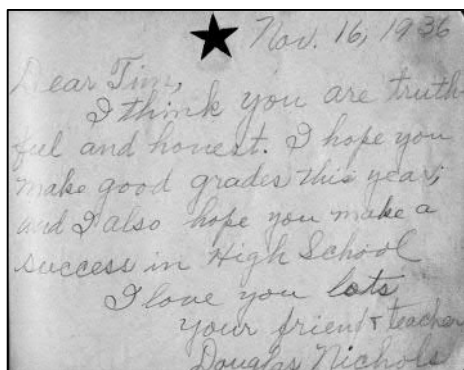 Nov. 16, 1936
Dear Tim,
I think you are truth-
ful and honest. I hope you
make good grades this year;
and I also hope you make a
success in High School
I love you lots
your friend & teacher
Douglas Nichols